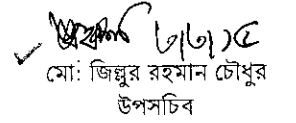 ৮/৮/১৫
মো: জিল্লুর রহমান চৌধুর
উপসচিব